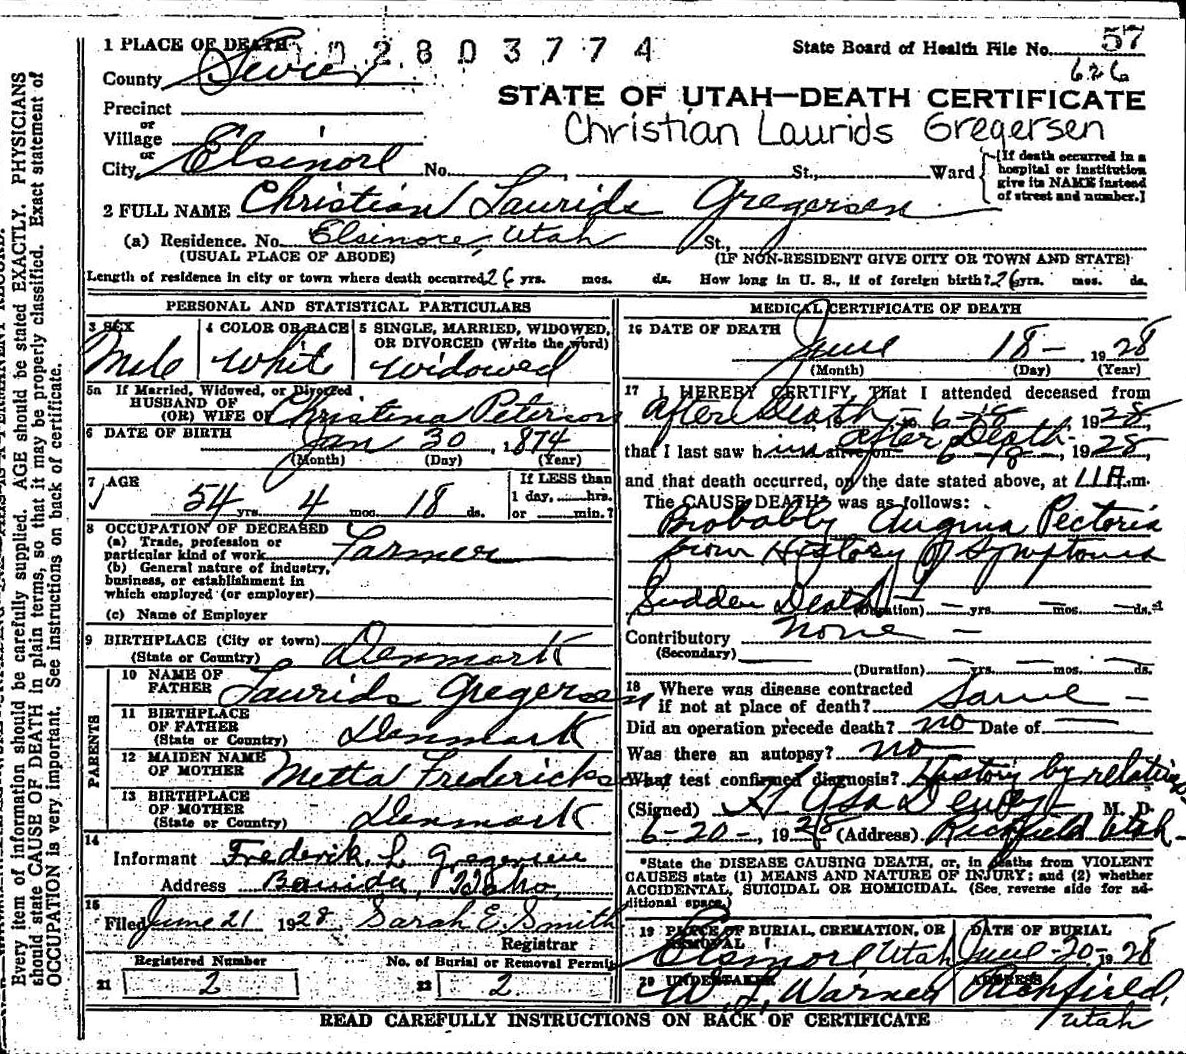 1 PLACE OF DEATH
02803774
State Board of Health File No. 57
County Sevier
626
Precinct
STATE OF UTAH—DEATH CERTIFICATE
or
Village
Christian Laurids Gregersen
or
City Elsinore No. St., Ward
[If death occurred in a hospital or institution give its NAME instead of street and number.]
2 FULL NAME Christian Laurids Gregersen
(a) Residence. No. Elsinore, Utah St.,
(USUAL PLACE OF ABODE) (IF NON-RESIDENT GIVE CITY OR TOWN AND STATE)
Length of residence in city or town where death occurred 26 yrs. mos. ds. How long in U. S., if of foreign birth? 26 yrs. mos. ds.
PERSONAL AND STATISTICAL PARTICULARS
3 SEX
Male
4 COLOR OR RACE
White
5 SINGLE, MARRIED, WIDOWED,
OR DIVORCED (Write the word)
Widowed
5a If Married, Widowed, or Divorced
HUSBAND OF
(OR) WIFE OF Christina Peterson
6 DATE OF BIRTH Jan 30, 1874
(Month) (Day) (Year)
7 AGE
54 yrs. 4 mos. 18 ds.
If LESS than
1 day, hrs.
or min.?
8 OCCUPATION OF DECEASED
(a) Trade, profession or
particular kind of work Farmer
(b) General nature of industry,
business, or establishment in
which employed (or employer)
(c) Name of Employer
9 BIRTHPLACE (City or town)
(State or Country) Denmark
PARENTS
10 NAME OF
FATHER Laurids Gregersen
11 BIRTHPLACE
OF FATHER
(State or Country) Denmark
12 MAIDEN NAME
OF MOTHER Metta Fredericks
13 BIRTHPLACE
OF MOTHER
(State or Country) Denmark
14
Informant Frederik L Gregersen
Address Idaho
15
Filed June 21 1928 Sarah E. Smith
Registrar
Registered Number No. of Burial or Removal Permit
21 2 22 2
MEDICAL CERTIFICATE OF DEATH
16 DATE OF DEATH
June 18 - , 1928
(Month) (Day) (Year)
17 I HEREBY CERTIFY, That I attended deceased from
after Death 19 to 6-18, 1928,
that I last saw him alive on after Death 6-18-, 1928,
and that death occurred, on the date stated above, at 11A.m.
The CAUSE DEATH* was as follows:
Probably Angina Pectoris
from History of Symptoms
Sudden Death - (Duration) — yrs. — mos. — ds.
Contributory None —
(Secondary)
(Duration) yrs. mos. ds.
18 Where was disease contracted
if not at place of death? Same —
Did an operation precede death? no Date of
Was there an autopsy? no
What test confirmed diagnosis? History by relatives
(Signed) H Asa Dewey M. D.
6-20-, 1928 (Address) Richfield Utah -
*State the DISEASE CAUSING DEATH, or, in deaths from VIOLENT
CAUSES state (1) MEANS AND NATURE OF INJURY; and (2) whether
ACCIDENTAL, SUICIDAL OR HOMICIDAL. (See reverse side for ad-
ditional space.)
19 PLACE OF BURIAL, CREMATION, OR
REMOVAL
Elsinore Utah
DATE OF BURIAL
June 20 1928
20 UNDERTAKER
W. J. Warner
ADDRESS
Richfield,
Utah
READ CAREFULLY INSTRUCTIONS ON BACK OF CERTIFICATE
Every item of information should be carefully supplied. AGE should be stated EXACTLY. PHYSICIANS
should state CAUSE OF DEATH in plain terms, so that it may be properly classified. Exact statement of
OCCUPATION is very important. See instructions on back of certificate.